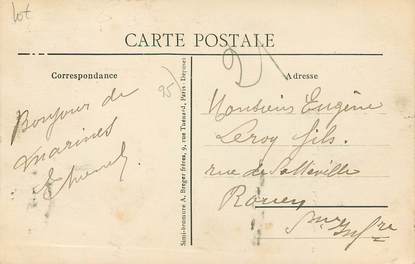 lot
CARTE POSTALE
Correspondance
Adresse
95)
Bonjour de
Marines
Simi-bromure A. Breger frères, 9, rue Thénard, Paris - Déposé
Monsieur Eugène
Leroy fils.
rue de Sotteville
Rouen
Sne Infre